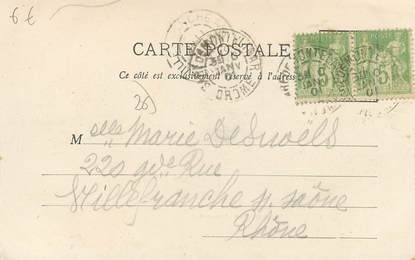 6€
CARTE POSTALE
Ce côté est exclusivement réservé à l'adresse
26
M elle Marie Desnoëls
220 gde Rue
Villefranche s. saône
Rhône